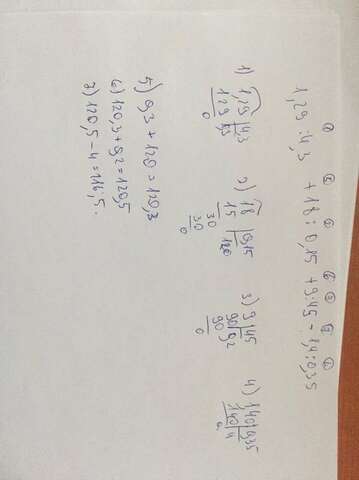 ① ⑤ ② ⑥ ③ ⑦ ④
1,29 : 4,3 + 18 : 0,15 + 9 : 45 - 1,4 : 0,35
1) 1,29 | 4,3
1 29 0,3
0
2) 18 | 0,15
15 120
30
30
0
3) 9 | 45
90 0,2
90
0
4) 140 | 0,35
140 4
0
5) 0,3 + 120 = 120,3
6) 120,3 + 0,2 = 120,5
7) 120,5 - 4 = 116,5.